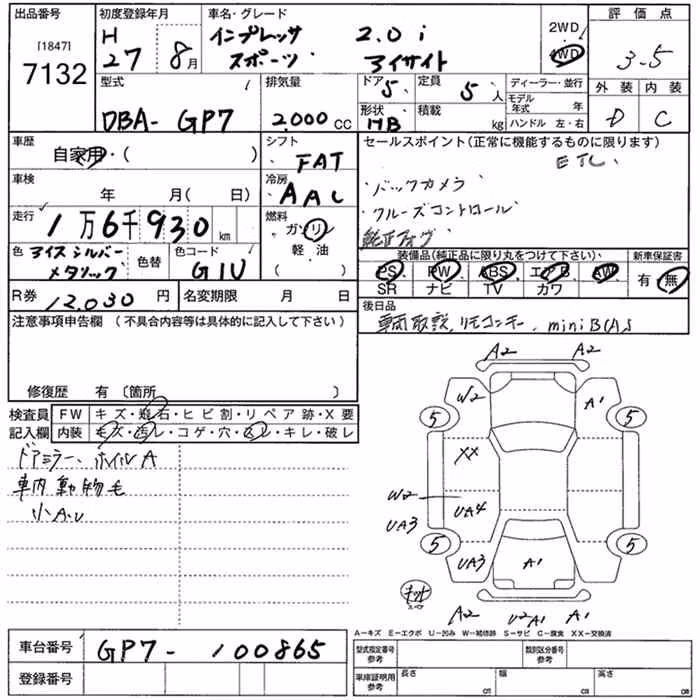 出品番号
[1847]
7132
初度登録年月
H
27 8月
車名・グレード
インプレッサ 2.0 i
スポーツ アイサイト
2WD
4WD
評価点
3.5
外装 内装
D C
型式
DBA- GP7
排気量
2,000 CC
ドア 5
定員 5人
形状 HB
積載 kg
ディーラー・並行
モデル年式 年
ハンドル 左・右
車歴
自家用・( )
シフト
FAT
セールスポイント(正常に機能するものに限ります)
ETC
バックカメラ
クルーズコントロール
純正
車検
年 月( 日)
冷房
AAC
走行
1万6千930 km
燃料
ガソリン
軽・油
色 アイスシルバー
メタリック
色替
色コード
G1U
装備品(純正品に限り丸をつけて下さい)
PS PW ABS エアB AW
SR ナビ TV カワ
新車保証書
有 無
R券 12,030 円
名変期限 月 日
後日品
車両取説、リモコンキー、miniBCAS
注意事項申告欄 (不具合内容等は具体的に記入して下さい)
修復歴 有 〔箇所 〕
検査員
記入欄
FW キズ・飛石・ヒビ割・リペア跡・X要
内装 キズ・汚レ・コゲ・穴・スレ・キレ・破レ
ドアミラー、ホイルA
車内動物毛
小A.U
A2 A2
W2 A1
5 5
XX
W2
UA4
UA3
5 5
UA3 A1
キット
スペア
A2 U2A1 A1
A-キズ E-エクボ U-凹み W-補修跡 S-サビ C-腐食 XX-交換済
車台番号 GP7- 100865
登録番号
型式指定番号
参考
類別区分番号
参考
車庫証明用
参考
長さ cm
幅 cm
高さ cm